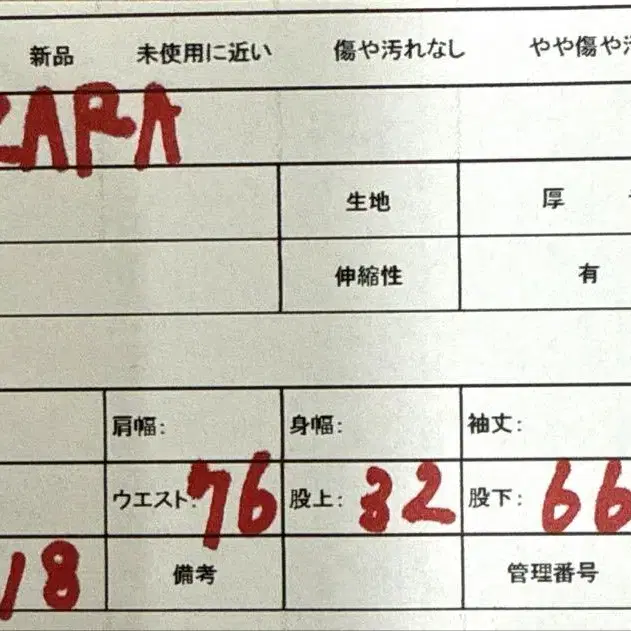 新品 未使用に近い 傷や汚れなし やや傷や汚
ZARA
生地 厚
伸縮性 有
肩幅: 身幅: 袖丈:
ウエスト:76 股上:32 股下:66
18 備考 管理番号